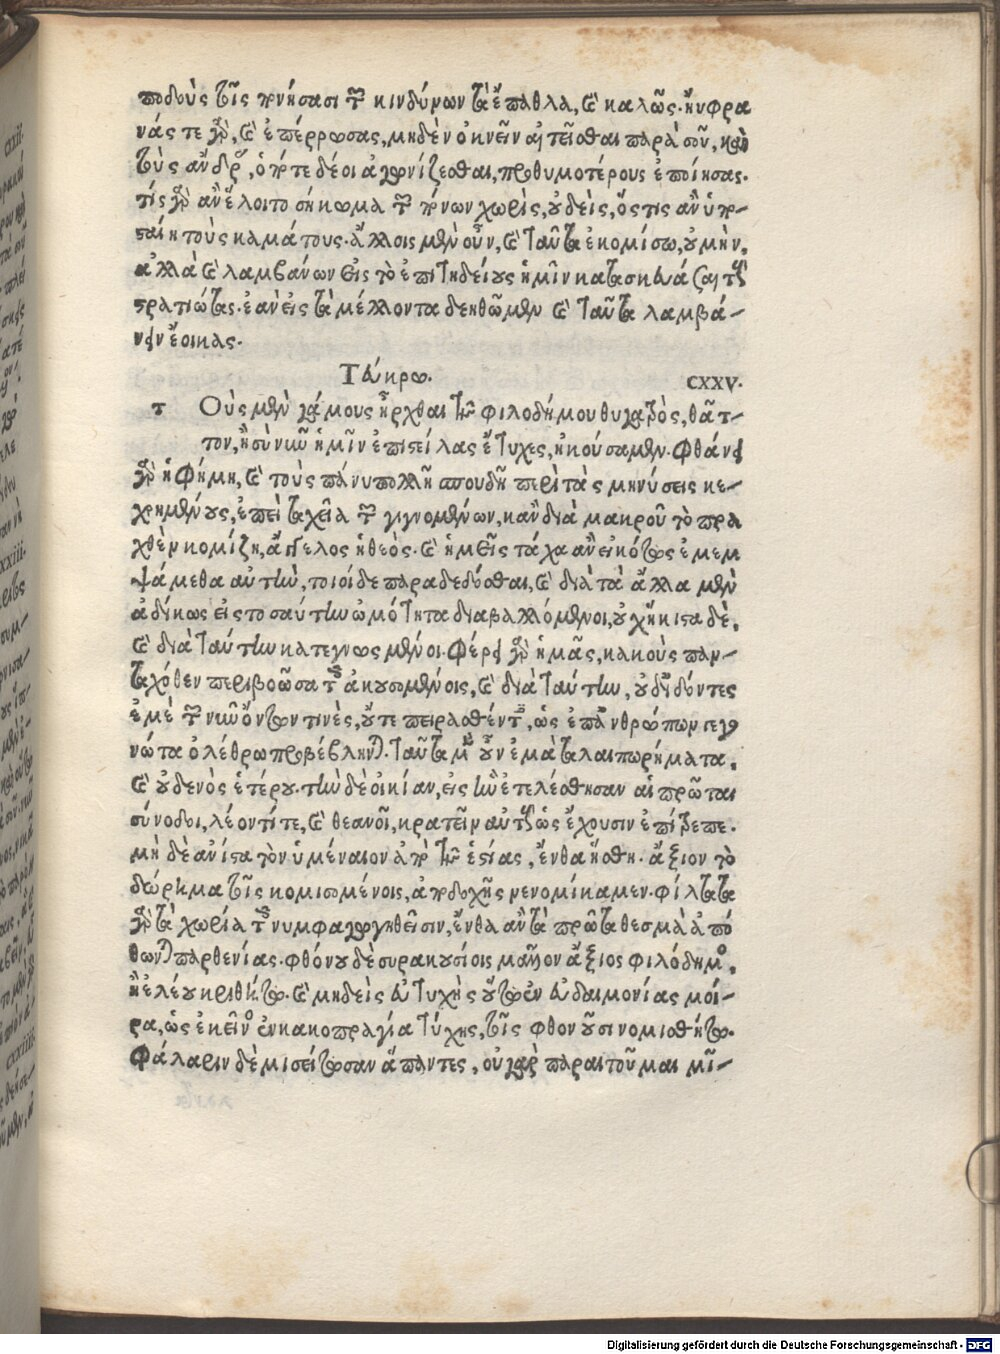 ποδοὺς τοῖς πονήσασι τῶν κινδύνων τὰ ἔπαθλα, καὶ καλῶς. ηὔφρα
νάς τε γὰρ, καὶ ἐπέρρωσας, μηδὲν ὀκνεῖν αἰτεῖσθαι παρὰ σοῦ, καὶ
τοὺς ἄνδρας, ὁπότε δέοι ἀγωνίζεσθαι, προθυμοτέρους ἐποίησας.
τίς γὰρ ἂν ἕλοιτο σήκωμα τῶν πόνων χωρὶς, οὐδεὶς, ὅς τις ἂν ὑπο-
σταίη τοὺς καμάτους. ἄλλοις μὲν οὖν, καὶ ταῦτα ἐκομίσω, οὐ μὴν,
ἀλλὰ καὶ λαμβάνων εἰς τὸ ἐπιτηδείους ἡμῖν κατασκευάζαι τοὺς
στρατιώτας. ἐὰν εἰς τὰ μέλλοντα δεηθῶμεν καὶ ταῦτα λαμβά-
νειν ἔοικας.
Τεύκρῳ. CXXV.
τ Οὺς μὲν γάμους ἦρχθαι τῶν φιλοδήμου θυγατρὸς, θᾶτ-
τον, ἢ σὺ νῦν ἡμῖν ἐπιστείλας ἔτυχες, ἠκούσαμεν. φθάνει
γὰρ ἡ Φήμη, καὶ τοὺς πάνυ πολλῇ σπουδῇ περὶ τὰς μηνύσεις κε-
χρημένους, ἐπεὶ ταχεῖα τῶν γιγνομένων, κἂν διὰ μακροῦ τὸ πρα
χθὲν κομίζῃ, ἄγγελος ἡ θεὸς. καὶ ἡμεῖς τάχα ἂν εἰκότως ἐμεμ
ψάμεθα αὐτὴν, τοιοίδε παραδεδόσθαι, καὶ διὰ τὰ ἄλλα μὲν
ἀδίκως εἰς τοσαύτην ὠμότητα διαβαλλόμενοι, οὐχ ἥκιστα δὲ,
καὶ διὰ ταύτην κατεγνωσμένοι. φέρει γὰρ ἡμᾶς, κακοὺς παν-
ταχόθεν περιβοῶσα τοῖς ἀκουσομένοις, καὶ διὰ ταύτην, οὐδιδόντες
ἐμὲ τῶν νῦν ὄντων τινὲς, οὔτε πειραθέντες, ὡς ἐπ' ἀνθρώπων γεγο
νώτα ὀλέθρῳ προβέβληνται. ταῦτα μὲν οὖν ἐμὰ ταλαιπωρήματα,
καὶ οὐδενὸς ἑτέρου. τὴν δὲ οἰκίαν, εἰς ἣν ἐτελέσθησαν αἱ πρῶται
σύνοδοι, λέοντί τε, καὶ θεανοῖ, κρατεῖν αὐτοὺς ὡς ἔχουσιν ἐπίτρεπε.
μὴ δὲ ἀνίστα τὸν ὑμέναιον ἀπὸ τῆς ἑστίας, ἔνθα ᾔσθη. ἄξιον τὸ
δώρημα τοῖς κομισομένοις, ἀποδοχῆς νενομίκαμεν. φίλτατα
γὰρ τὰ χωρία τοῖς νυμφαγωγηθεῖσιν, ἔνθα ἂν τὰ πρῶτα θεσμὰ ἀπό
θωνται παρθενίας. φθόνου δὲ συρακουσίοις μᾶλλον ἄξιος φιλόδημος,
ἢ ἐλέου κριθήτω. καὶ μηδεὶς εὐτυχὴς οὕτως ἐν εὐδαιμονίας μοί-
ρᾳ, ὡς ἐκεῖνος ἐν κακοπραγίᾳ τύχης, τοῖς φθονοῦσι νομισθήτω.
Φάλαριν δὲ μισείτωσαν ἅπαντες, οὐ γὰρ παραιτοῦμαι μῖ-